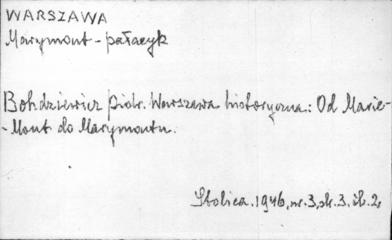 WARSZAWA
Marymont - pałacyk
Bohdziewicz Piotr. Warszawa historyczna: Od Marie-
-Mont do Marymontu.
Stolica. 1946, nr. 3, sk. 3, il. 2,